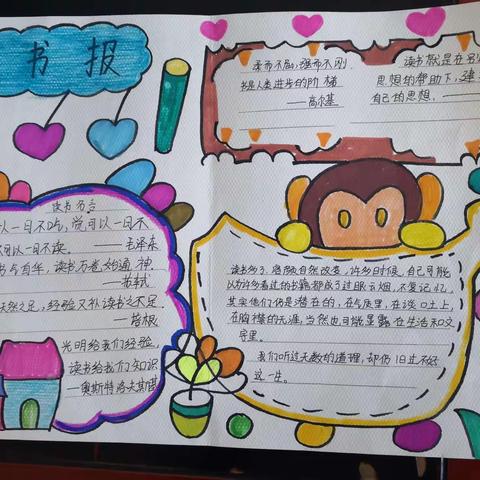 书报
柔而不屈，强而不刚
书是人类进步的阶梯
——高尔基
读书就是在别
思想的帮助下，建
自己的思想，
读书名言
以一日不吃，觉可以一日不
不可以一日不读。——毛泽东
书与百年，读书万卷始通神。
——苏轼
天然之足，经验又补读书之不足。
——培根
光明给我们经验，
读书给我们知识
——奥斯特洛夫斯基
读书多了，容颜自然改变，许多时候，自己可能
以为许多看过的书籍都成了过眼云烟，不复记忆，
其实他们仍是潜在的，在气质里，在谈吐上，
在胸襟的无涯，当然也可能显露在生活和文
字里。
我们听过无数的道理，却仍旧过不好
这一生。